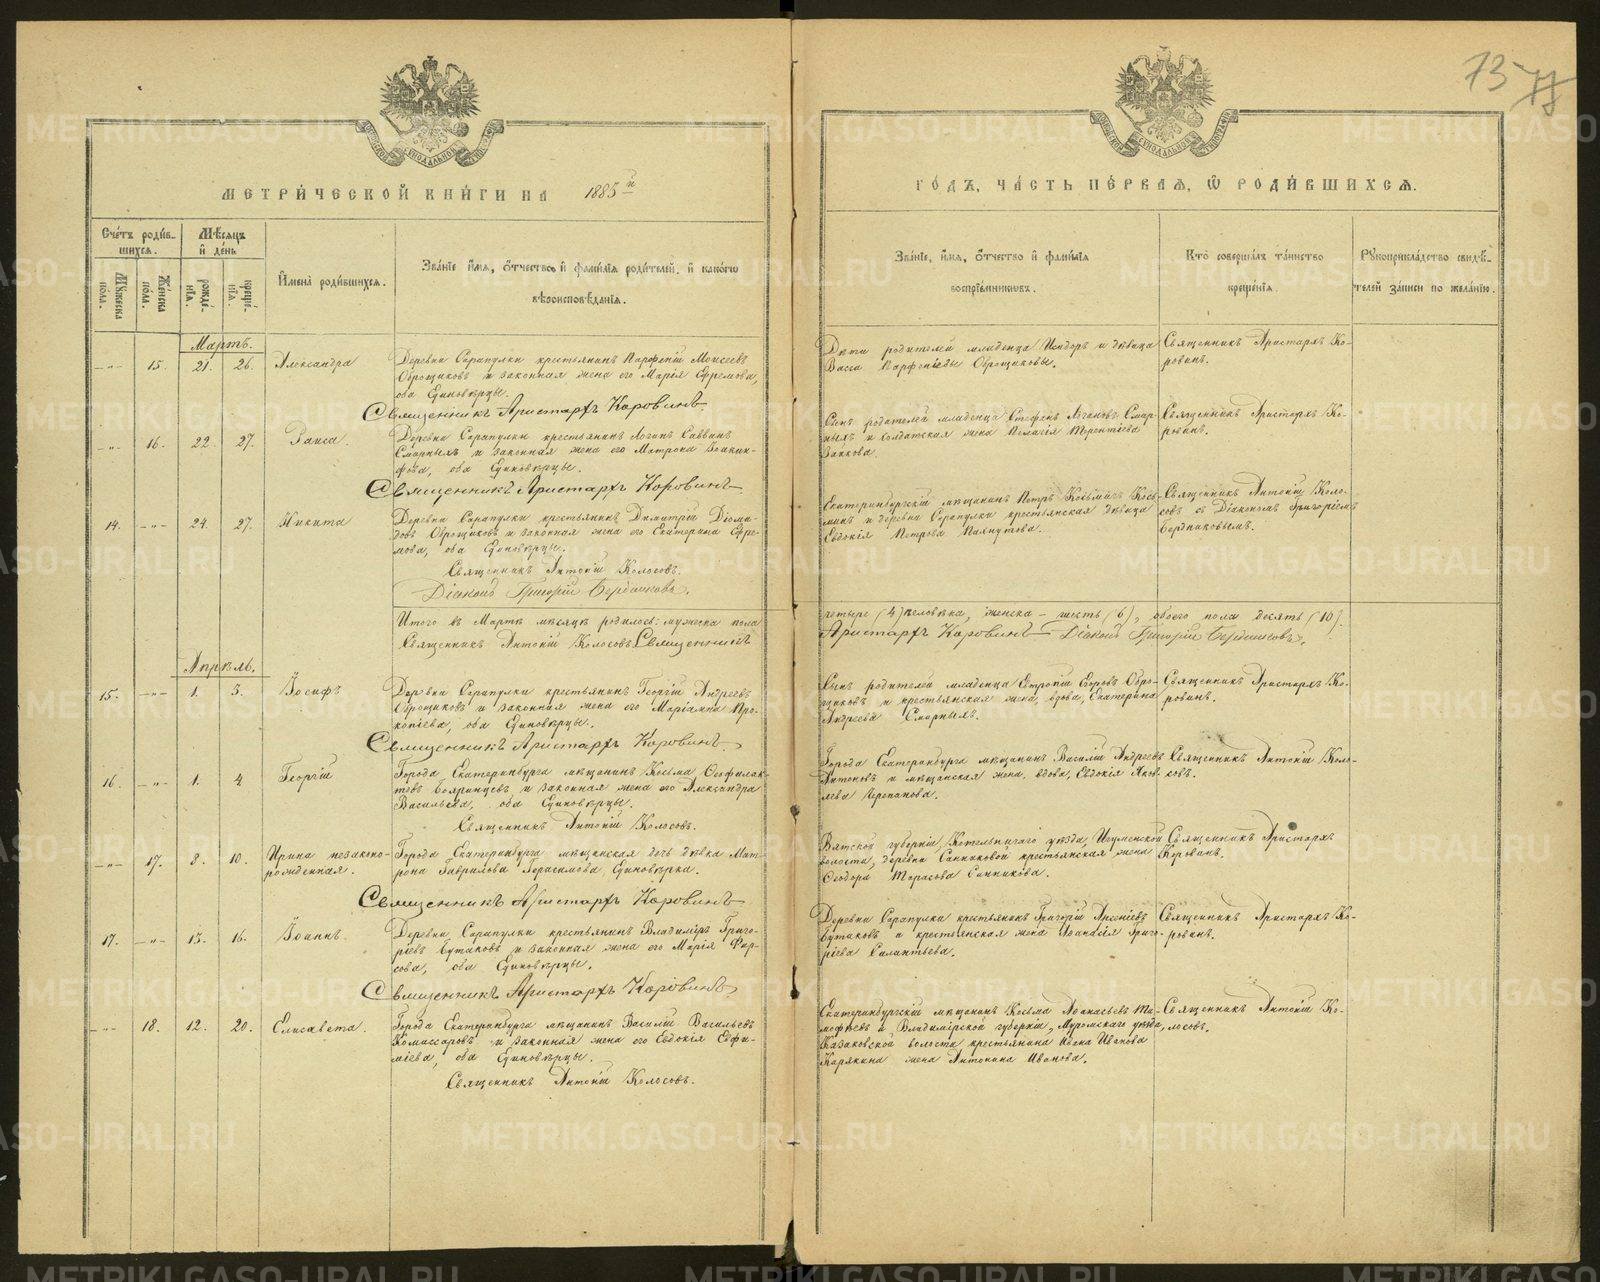 73
МЕТРИ́ЧЕСКОЙ КНИ́ГИ НА 1885 й
ГО́ДЪ, ЧА́СТЬ ПЕ́РВАЯ, Ѡ РОДИ́ВШИХСЯ.
Сче́тъ роди́в-
шихся.
Мꙋжеска по́ла.
Же́нска по́ла.
Мѣ́сяцъ и де́нь
рожде́нїя.
креще́нїя.
И҆мена̀ роди́вшихся.
Зва́нїе и҆́мя, ѻ҆́тчество и҆ фами́лїя роди́телей, и҆ како́гѡ
вѣроисповѣ́данїя.
Зва́нїе, и҆́мя, ѻ҆́тчество и҆ фами́лїя
воспрїе́мникѡвъ.
Кто̀ соверша́лъ та́инство
креще́нїя.
Рꙋкоприкла́дство свидѣ́-
телей за́писи по жела́нїю.
Мартъ.
15. 21. 26. Александра
Деревни Сарапулки крестьянинъ Парфеній Моисеевъ
Оброщиковъ и законная жена его Марія Ефремова,
оба Единовѣрцы.
Священникъ Аристархъ Коровинъ
Дѣти родителей младенца Исидоръ и дѣвица
Васса Парфеньевы Оброщиковы.
Священникъ Аристархъ Ко-
ровинъ.
16. 22. 27. Раиса.
Деревни Сарапулки крестьянинъ Логинъ Саввинъ
Смарныхъ и законная жена его Матрона Іоакин-
фова, оба Единовѣрцы.
Священникъ Аристархъ Коровинъ
Сынъ родителей младенца Стефанъ Логиновъ Смар-
ныхъ и солдатская жена Пелагія Терентіева
Священникъ Аристархъ Ко-
ровинъ.
14. 24. 27. Никита
Деревни Сарапулки крестьянинъ Димитрій Діоми-
довъ Оброщиковъ и законная жена его Екатерина Ефре-
мова, оба Единовѣрцы.
Священникъ Антоній Колосовъ.
Діаконъ Григорій Бердниковъ.
Екатеринбургскій мѣщанинъ Петръ Косьминъ Кось-
минъ и деревни Сарапулки крестьянская дѣвица
Евдокія Петрова Пахнутова.
Священникъ Антоній Коло-
совъ съ Діакономъ Григоріемъ
Бердниковымъ.
Итого въ Мартѣ мѣсяцѣ родилось: мужеска пола
четыре (4) человѣка, женска – шесть (6), обоего пола десять (10).
Священникъ Антоній Колосовъ. Священникъ
Аристархъ Коровинъ Діаконъ Григорій Бердниковъ.
Апрѣль.
15. 1. 3. Іосифъ
Деревни Сарапулки крестьянинъ Георгій Андреевъ
Оброщиковъ и законная жена его Маріамна Про-
копіева, оба Единовѣрцы.
Священникъ Аристархъ Коровинъ
Сынъ родителей младенца Евтропій Егоровъ Обро-
щиковъ и крестьянская жена, вдова, Екатерина
Андреева Смарныхъ.
Священникъ Аристархъ Ко-
ровинъ.
16. 1. 4. Георгій
Города Екатеринбурга мѣщанинъ Косьма Ѳеофилак-
товъ Бояринцевъ и законная жена его Александра
Васильева, оба Единовѣрцы.
Священникъ Антоній Колосовъ.
Города Екатеринбурга мѣщанинъ Василій Андреевъ
Антоновъ и мѣщанская жена, вдова, Евдокія Яков-
лева Черепанова.
Священникъ Антоній Коло-
совъ.
17. 8. 10. Ирина незаконо-
рожденная.
Города Екатеринбурга мѣщанская дочь дѣвка Мат-
рона Гаврилова Герасимова, Единовѣрка.
Священникъ Аристархъ Коровинъ
Вятской губерніи, Котельничаго уѣзда, Игуменской
волости, деревни Санниковой крестьянская жена
Ѳеодора Тарасова Санникова.
Священникъ Аристархъ
Коровинъ.
17. 13. 16. Іоаннъ.
Деревни Сарапулки крестьянинъ Владиміръ Григо-
ріевъ Бутаковъ и законная жена его Марія Фир-
сова, оба Единовѣрцы.
Священникъ Аристархъ Коровинъ
Деревни Сарапулки крестьянинъ Григорій Арсеніевъ
Бутаковъ и крестьянская жена Аѳанасія Григо-
ріева Силантьева.
Священникъ Аристархъ Ко-
ровинъ.
18. 12. 20. Елисавета.
Города Екатеринбурга мѣщанинъ Василій Васильевъ
Комиссаровъ и законная жена его Евдокія Евфи-
міева, оба Единовѣрцы.
Священникъ Антоній Колосовъ.
Екатеринбургскій мѣщанинъ Косьма Аѳанасьевъ Ти-
мофѣевъ и Владимірской губерніи, Муромскаго уѣзда,
Казаковской волости, крестьянина Ивана Иванова
Карякина жена Антонина Иванова.
Священникъ Антоній Ко-
лосовъ.
METRIKI.GASO-URAL.RU